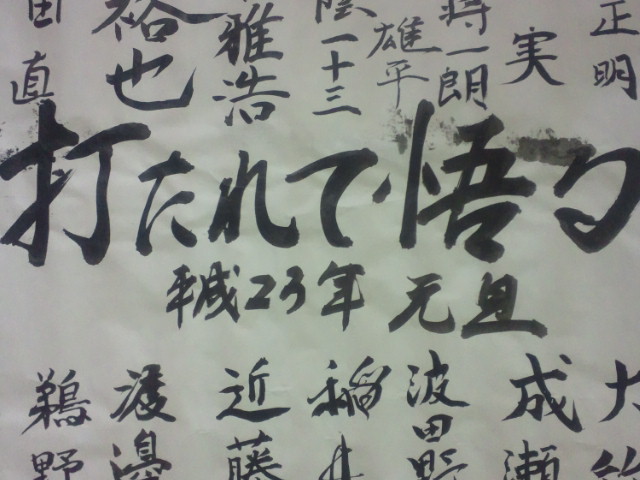 正明
実
将一郎
雄平
陰一十三
雅浩
裕也
田直
打たれて悟る
平成23年 元旦
大竹
成瀬
波田野
稲井
近藤
渡邊
鵜野